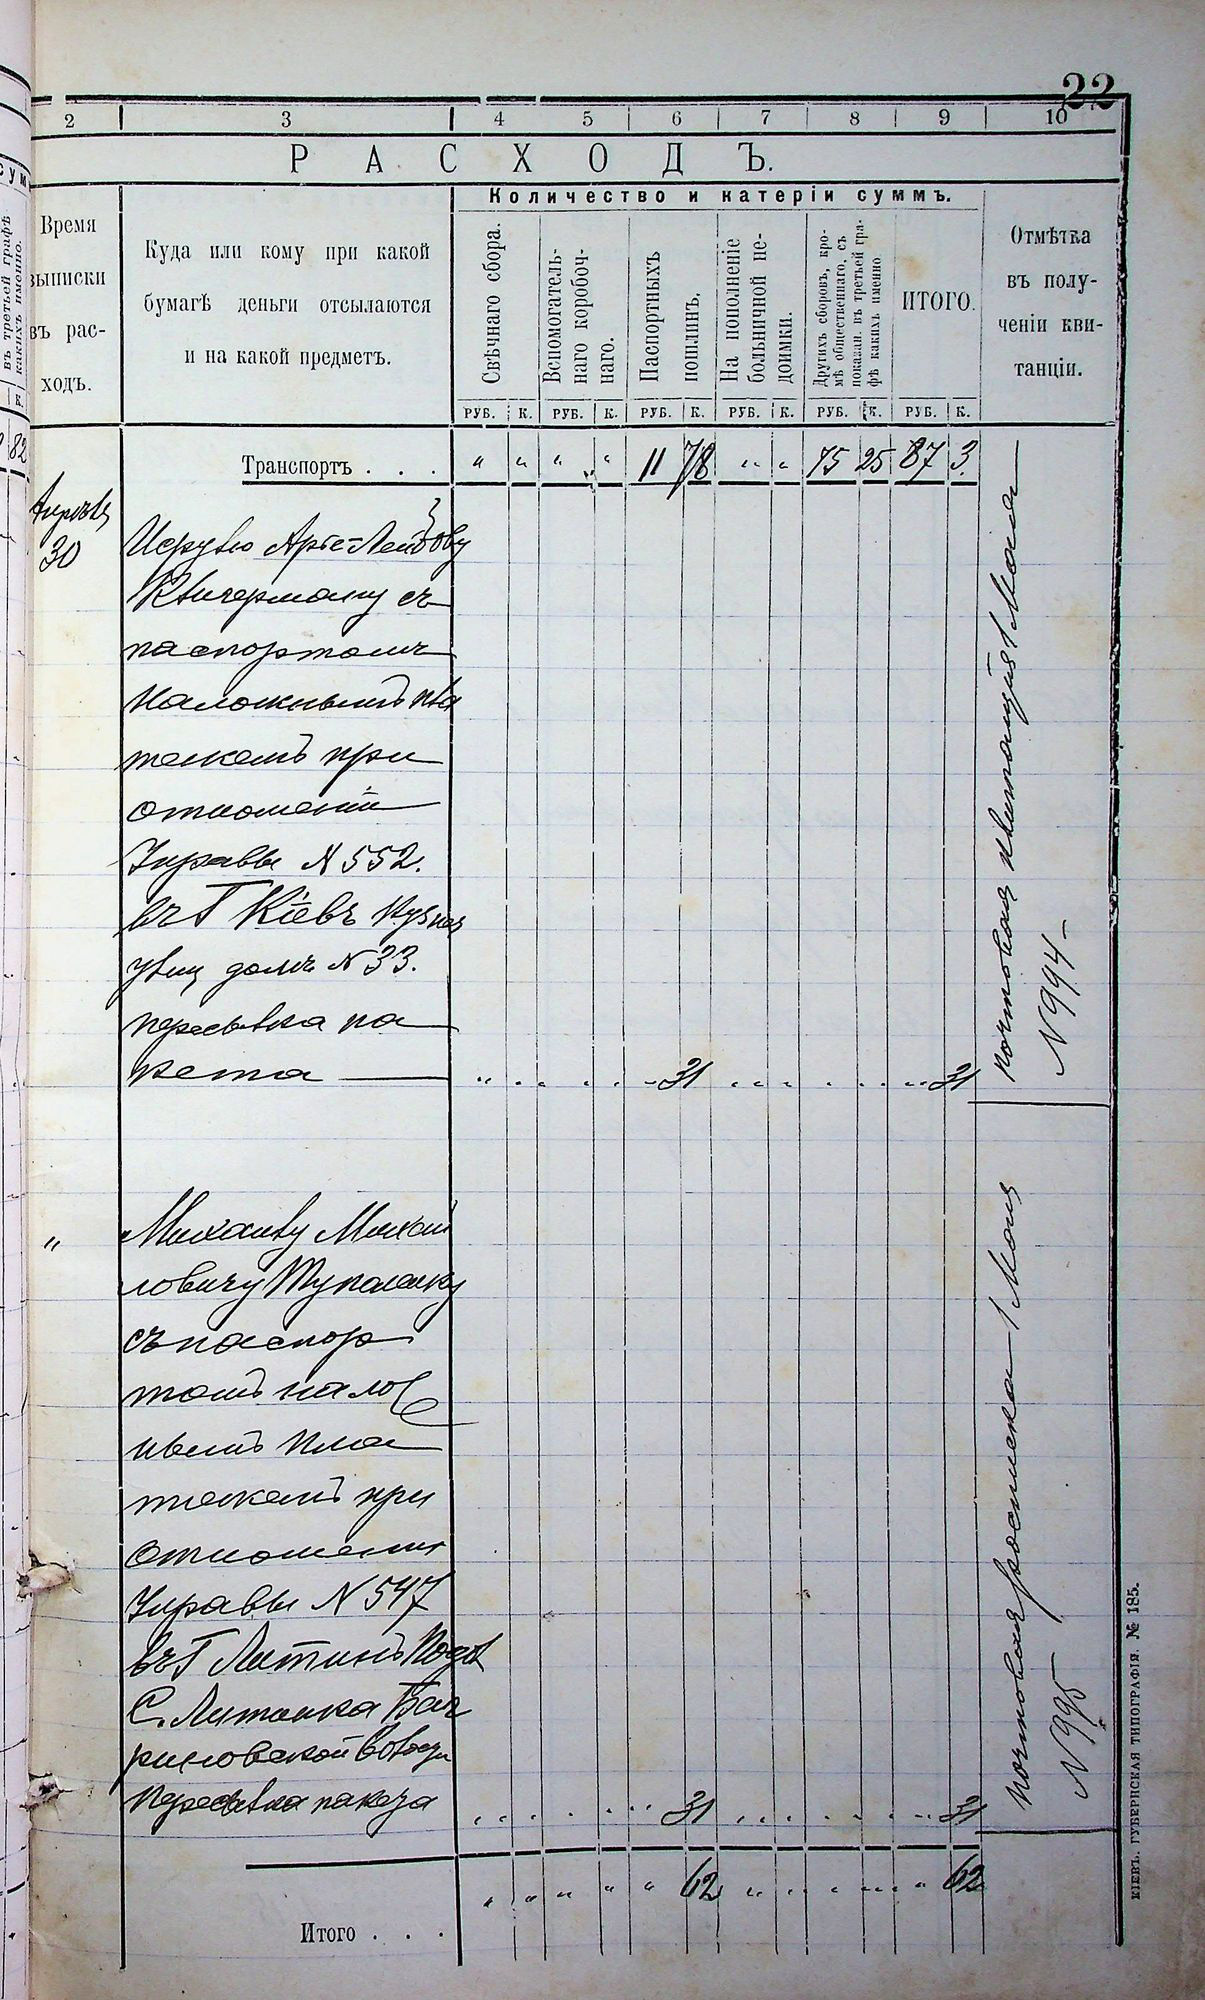 22
2 3 4 5 6 7 8 9 10
РАСХОДЪ.
Время
выписки
въ рас-
ходъ.
Куда или кому при какой
бумагѣ деньги отсылаются
и на какой предметъ.
Количество и катеріи суммъ.
Свѣчнаго сбора.
Вспомогатель-
наго коробоч-
наго.
Паспортныхъ
пошлинъ.
На пополненіе
больничной не-
доимки.
Другихъ сборовъ, кро-
мѣ общественнаго, съ
показан. въ третьей гра-
фѣ какихъ именно
ИТОГО.
Отмѣтка
въ полу-
ченіи кви-
танціи.
РУБ. К. РУБ. К. РУБ. К. РУБ. К. РУБ. К. РУБ. К.
Транспортъ . . . " " " " 11 78 " " 75 25 87 3.
Апрѣля
30
паспортомъ
наложнымъ пла
тежемъ при
отношеніи
Управы N 552.
въ Г Кіевъ Кузнеч
улиц домъ N 33.
пересылка па
кета — 31 31
почтовая квитанція 1 Мая
N 994
" Михаилу Михай
ловичу
съ паспор
томъ налож
нымъ пла
тежемъ при
отношеніи
Управы N 547
въ Г Литинъ Подол
С. Литинка Баг
риновской волости
Пересылка пакета 31 31
почтовая росписка 1 Мая
N 995
Итого . . . " " " " " 62 " " " " " 62
КІЕВЪ, ГУБЕРНСКАЯ ТИПОГРАФІЯ. № 185.